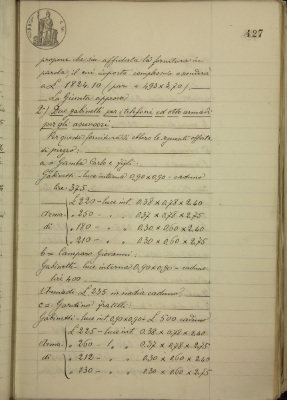 427
propone che sia affidata la fornitura in
parola, il cui importo complessivo ascenderà
a L 1824.10 / pari a 493 x 3,70 /
La Giunta approva.
2°) Due gabinetti pei telefoni ed otto armadi
per gli
Per quanto fornitura si ebbero le seguenti offerte
di prezzo:
a = Garmba Carlo e figli:
Gabinetti - luce interna 0,90 x 0,90 - caduno
lire 375
L 220 - luce int. 0.38 x 0.78 x 2.40
Arma- " 260 - " " 0.37 x 0.78 x 2.75
di " 180 - " " 0.30 x 0.60 x 2.40
" 210 - " " 0.30 x 0.60 x 2.75
b = Giovanni:
Gabinetti - luce interna 0,90 x 0,90 - caduno
lire 400
Armadi L 235 in media caduno
c = Giardino fratelli:
Gabinetti - luce int. 0,90 x 0,90 L 500 caduno
L 225 - luce int. 0.38 x 0.78 x 2.40
Arma- " 260 - " " 0.37 x 0.78 x 2.75
di " 212 - " " 0.30 x 0.60 x 2.40
" 230 - " " 0.30 x 0.60 x 2.75